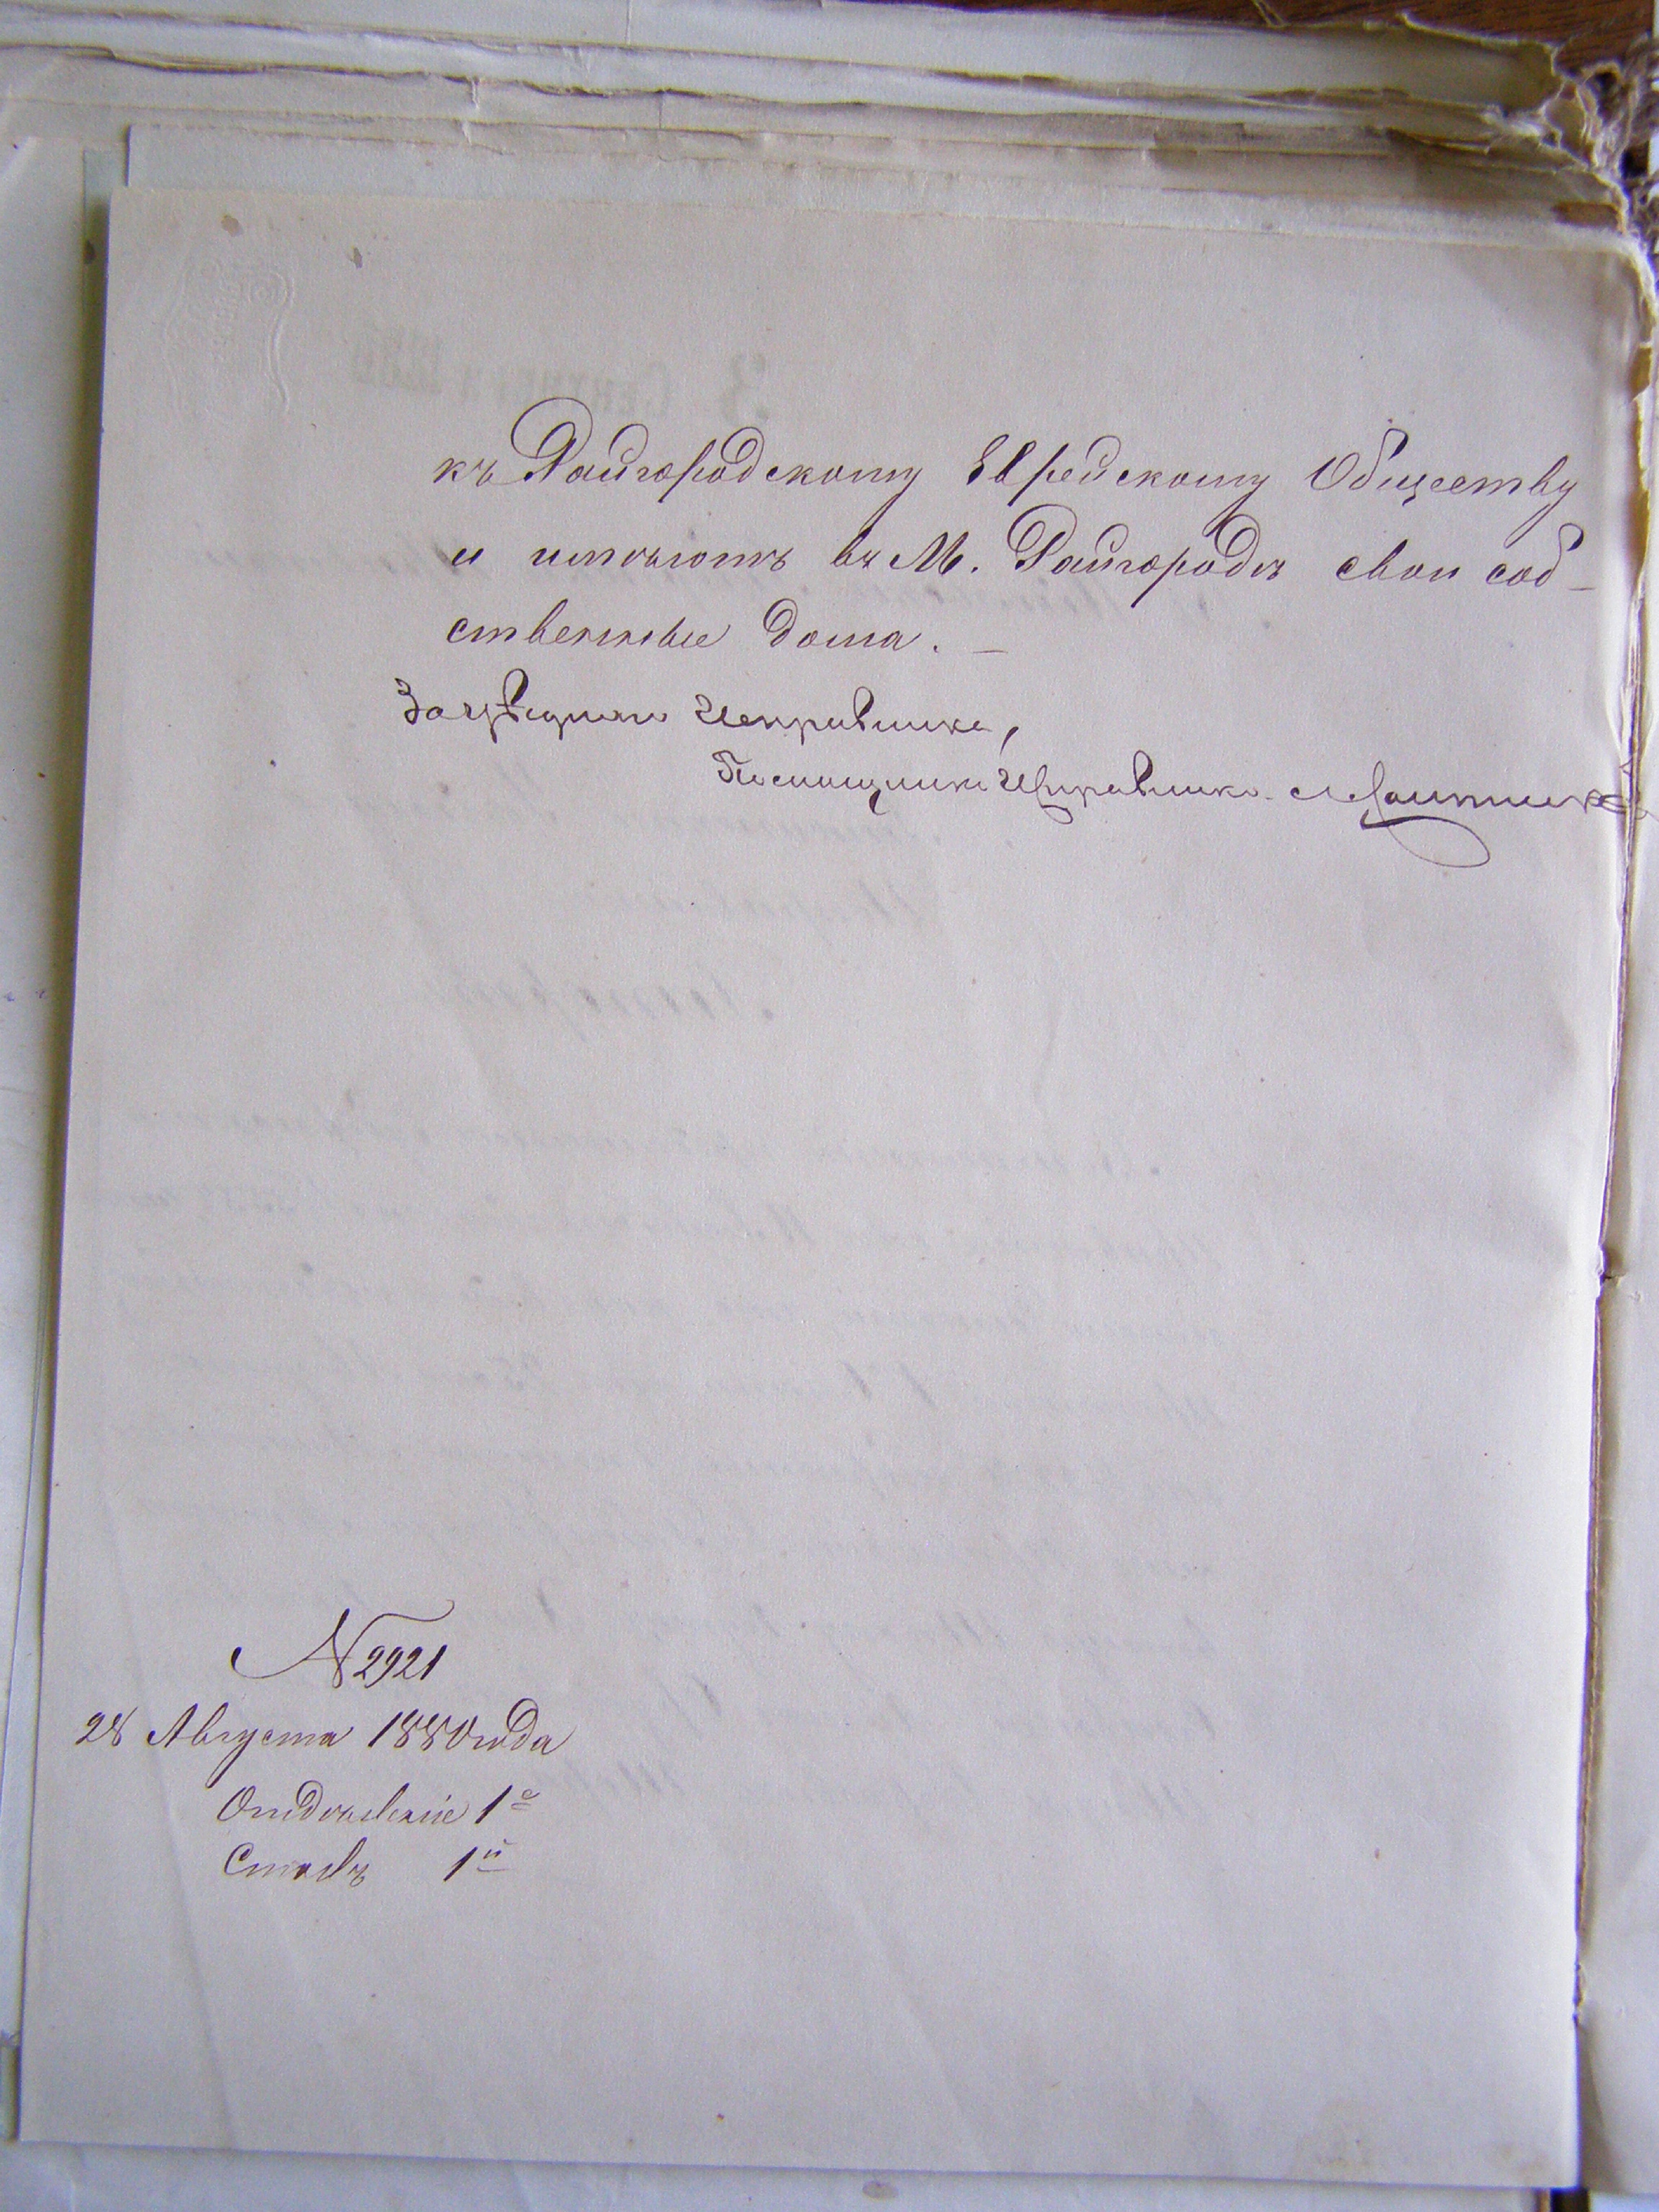 къ Райгородскому Еврейскому Обществу
и имѣютъ въ М. Райгородѣ свои соб-
ственные дома. —
За уѣзднаго Исправника,
Помощникъ Исправника
№ 2921
28 Августа 1880 года
Отдѣленіе 1е
Столъ 1й